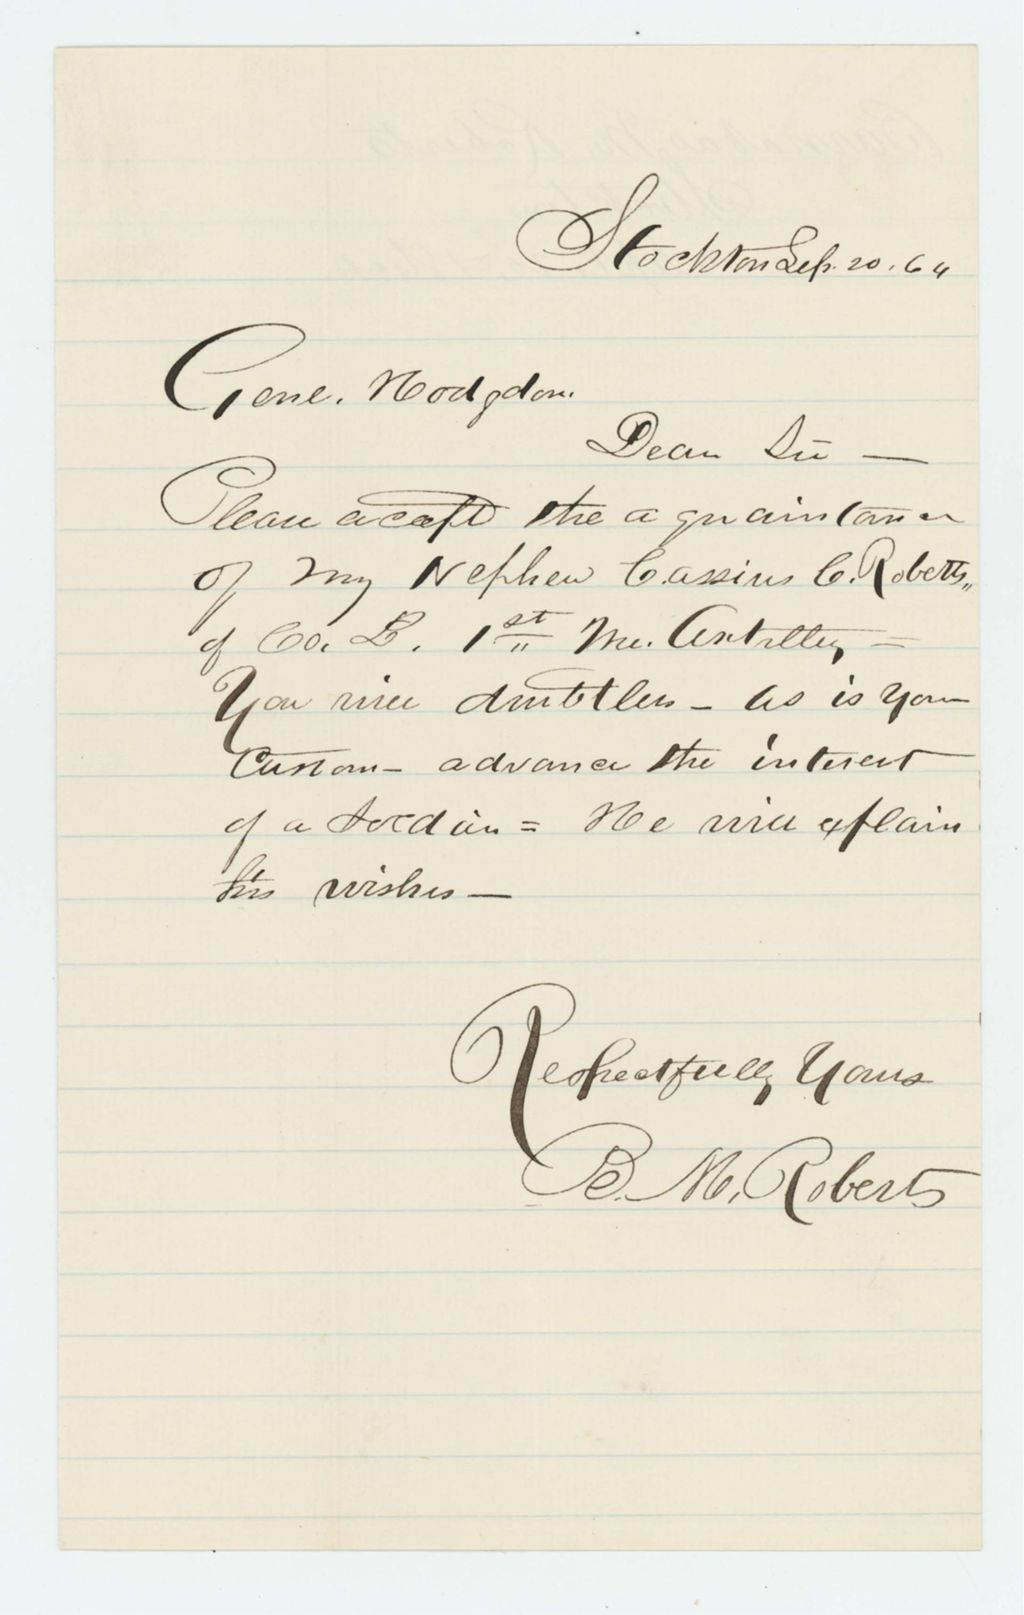 Stockton Sep. 20. 64
Gene. Hodgdon.
Dear Sir —
Please accept the aquaintance
of my Nephew Cassius C. Roberts,,
of Co. B. 1st Me. Artillery =
You will doubtless — as is your
Custom — advance the interest
of a Soldier = He will explain
his wishes —
Respectfully Yours
B. M. Roberts